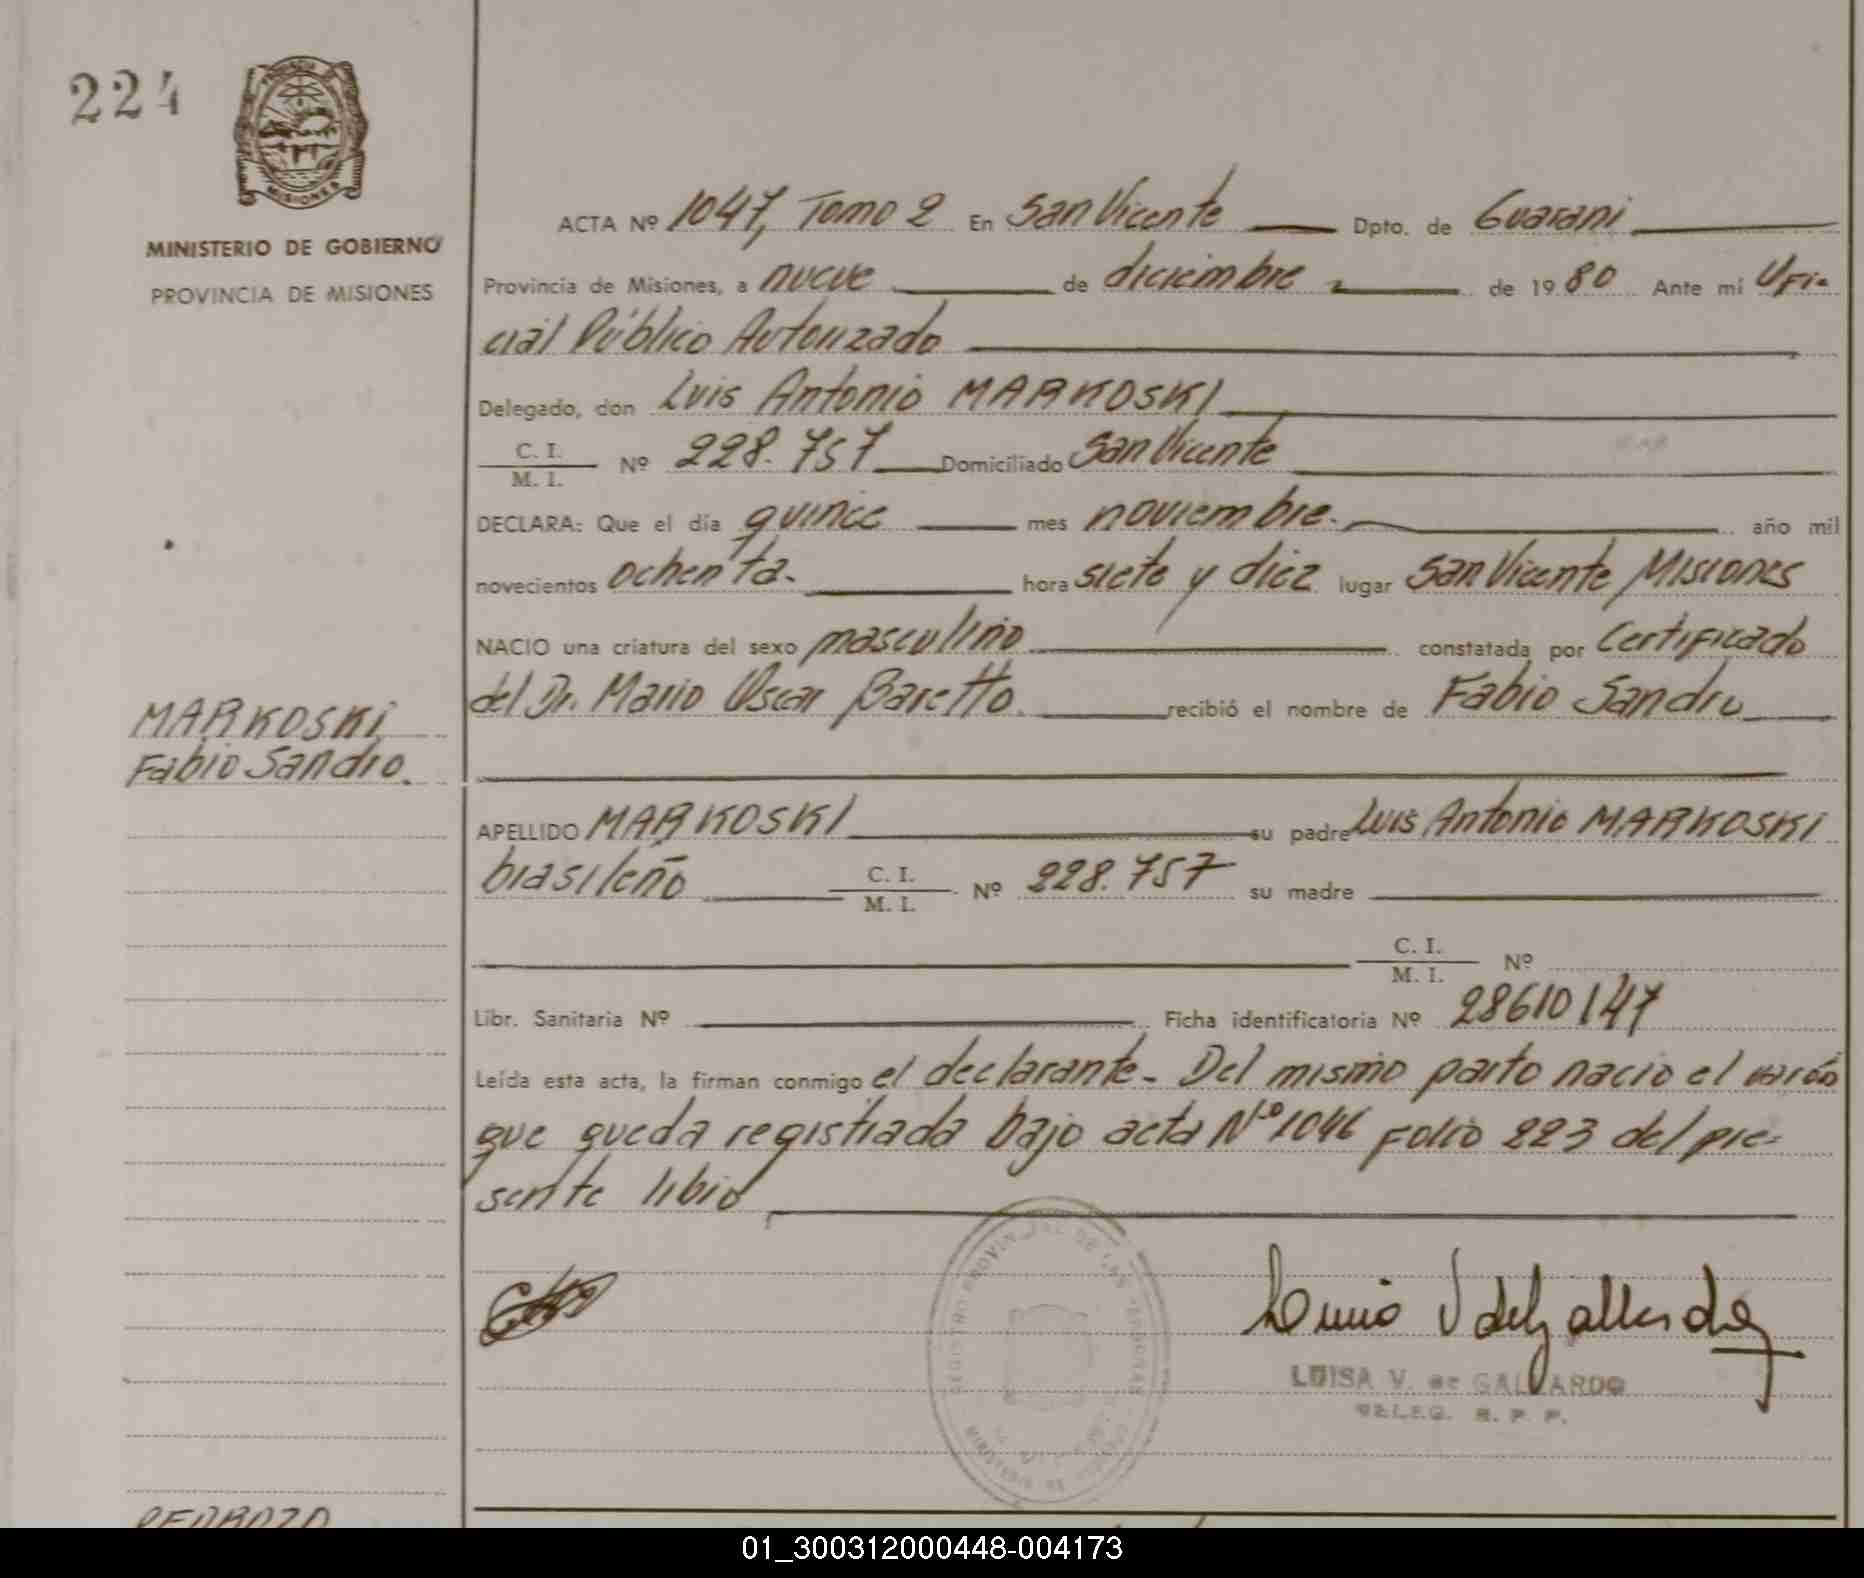 224
MISIONES
MINISTERIO DE GOBIERNO
PROVINCIA DE MISIONES
ACTA Nº 1047, Tomo 2 En San Vicente Dpto. de Guarani
Provincia de Misiones, a nueve de diciembre de 1980 Ante mi Ofi-
cial Público Autorizado
Delegado, don Luis Antonio MARKOSKI
C. I.
M. I. Nº 228.757 Domiciliado San Vicente
DECLARA: Que el día quince mes noviembre. año mil
novecientos ochenta. hora siete y diez lugar San Vicente Misiones
NACIO una criatura del sexo masculino constatada por Certificado
del Dr. Mario Oscar Baretto. recibió el nombre de Fabio Sandro
MARKOSKI
Fabio Sandro.
APELLIDO MARKOSKI su padre Luis Antonio MARKOSKI
brasileño C. I.
M. I. Nº 228.757 su madre
C. I.
M. I. Nº
Libr. Sanitaria Nº Ficha identificatoria Nº 28610147
Leída esta acta, la firman conmigo el declarante. Del mismo parto nacio el varón
que queda registrada bajo acta Nº 1046 Folio 223 del pre-
sente libro
LUISA V. de GALLARDO
DELEG. R. P. P.
PEDROZO
01_300312000448-004173